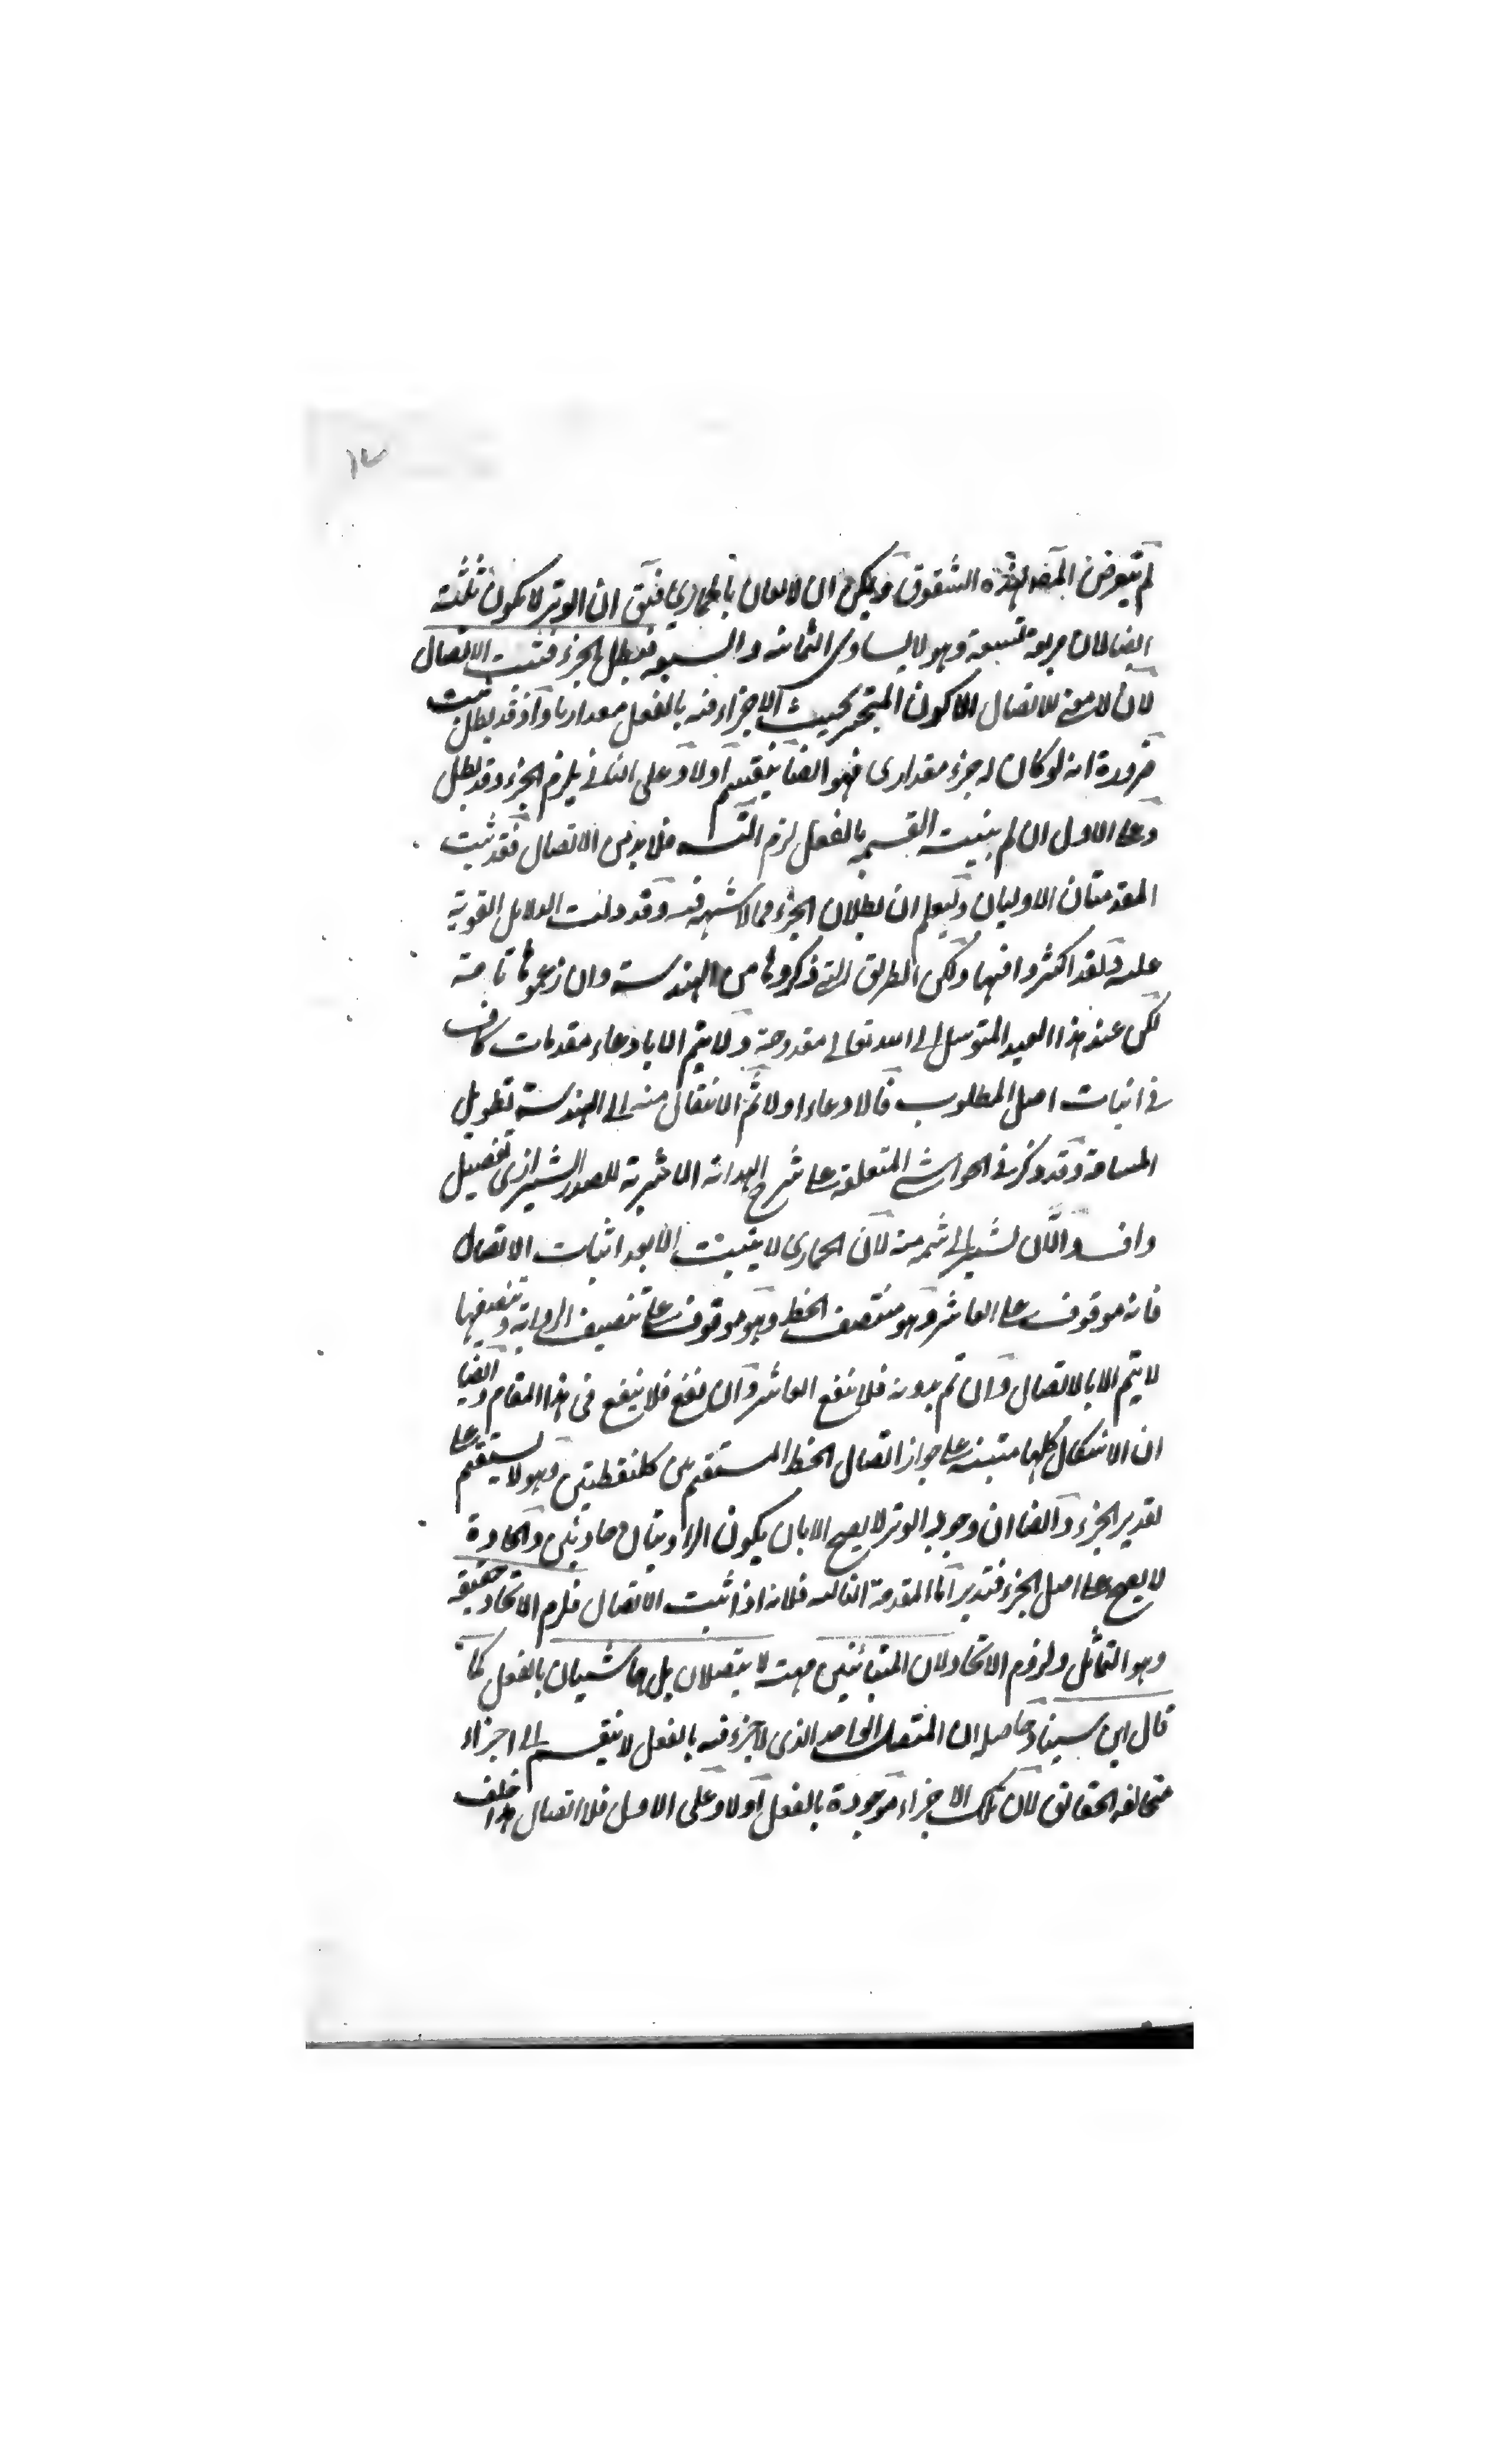 ١٢
لم يتعرض المص لهذه الشقوق ويمكن ان لا يعان بالحماري فيق ان الوتر لا يكون ثلثة
ايضا لان مربعه تسعة وهو لا يساوى الثمانية والسبعة فبطل الجزء فثبت الاتصال
لان لا معنى للاتصال الا كون المتحيز بحيث لا جزء فيه بالفعل مقداريا واذ قد بطل ثبت
ضرورة انه لو كان له جزء مقدارى فهو ايضا ينقسم اولا وعلى الثانى يلزم الجزء وقد بطل
وعلى الاول ان لم ينته القسمة بالفعل لزم التسـ فلا بد من الاتصال فقد ثبت
المقدمتان الاوليان وليعلم ان بطلان الجزء مما لا شبهة فيه وقد دلت الدلايل القوية
عليه فلقد اكثروا فيها ولكن الطريق التى ذكروها من الهندسة وان زعموها تامة
لكن عند هذا العبد المتوسل الى الله تعالى مقدوحة ولا يتم الا بادعاء مقدمات كاف
فى اثبات اصل المطلوب فالادعاء اولا ثم الانتقال منه الى الهندسة تطويل
المسافة وقد ذكر فى الحواشى المتعلقة على شرح الهداية الاثيرية للصدر الشيرازى تفصيل
واف والآن نشير الى شمة منه لان الحمارى لا يثبت الا بعد اثبات الاتصال
فانه موقوف على العاشر وهو منتصف الخط وهو موقوف على تنصيف الزواية وتنصيفها
لا يتم الا بالاتصال وان تم بدونه فلا ينفع العاشر وان نفع فلا ينفع فى هذا المقام وايضا
ان الاشكال كلها مبتنية على جواز اتصال الخط المستقيم بين كل نقطتين وهو لا يستقيم على
تقدير الجزء وايضا ان وجود الوتر لا يصح الا بان يكون الزاويتان حادتين والحادة
لا يصح على اصل الجزء فتدبر اما المقدمة الثالثة فلانه اذا ثبت الاتصال فلزم الاتحاد حقيقة
وهو التماثل ولزوم الاتحاد لان المتبائنين مهية لا يتصلان بل هما شيان بالفعل كما
قال ابن سينا وحاصله ان المتصل الواحد الذى لا جزء فيه بالفعل لا ينقسم الى اجزاء
متخالفة الحقائق لان تلك الاجزاء موجودة بالفعل اولا وعلى الاول فلا اتصال هذا خلف